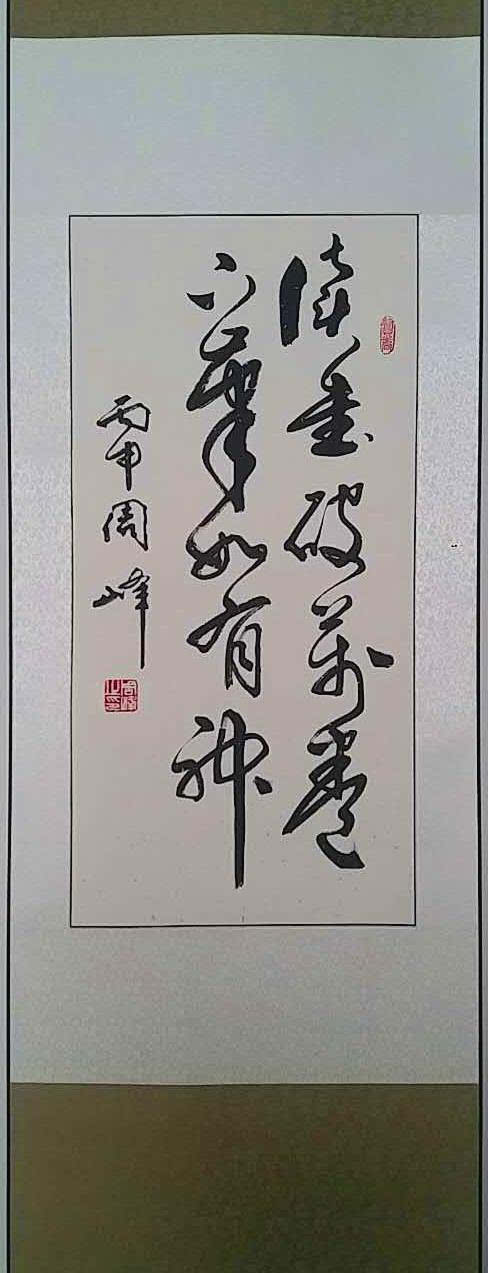 读书破萬卷
下筆如有神
丙申周峰